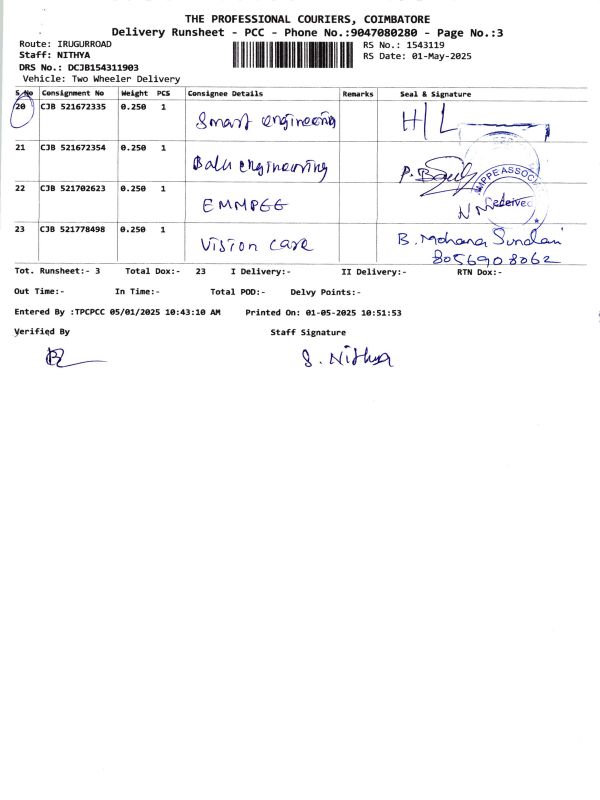 THE PROFESSIONAL COURIERS, COIMBATORE
Delivery Runsheet - PCC - Phone No.:9047080280 - Page No.:3
Route: IRUGURROAD
Staff: NITHYA
DRS No.: DCJB154311903
Vehicle: Two Wheeler Delivery
RS No.: 1543119
RS Date: 01-May-2025
S.No Consignment No Weight PCS Consignee Details Remarks Seal & Signature
20 CJB 521672335 0.250 1 Smart engineering H/L
21 CJB 521672354 0.250 1 Balu engineering P. 
22 CJB 521702623 0.250 1 EMMPEE Received
23 CJB 521778498 0.250 1 Vision care B. Mohana Sundari
8056908062
Tot. Runsheet:- 3 Total Dox:- 23 I Delivery:- II Delivery:- RTN Dox:-
Out Time:- In Time:- Total POD:- Delvy Points:-
Entered By :TPCPCC 05/01/2025 10:43:10 AM Printed On: 01-05-2025 10:51:53
Verified By Staff Signature
S. Nithya